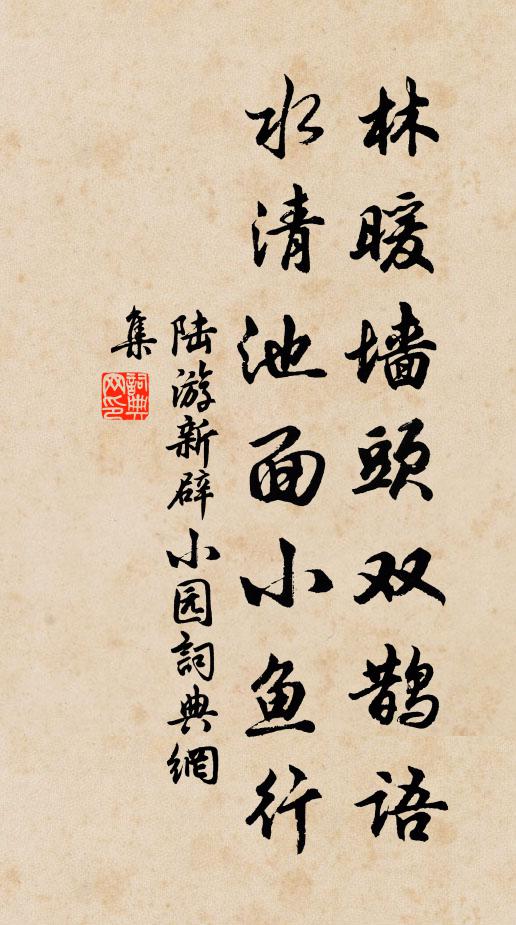 林暖墙頭双鹊语
水清池面小鱼行
陆游新辟小园詞典網
集
詞典网印